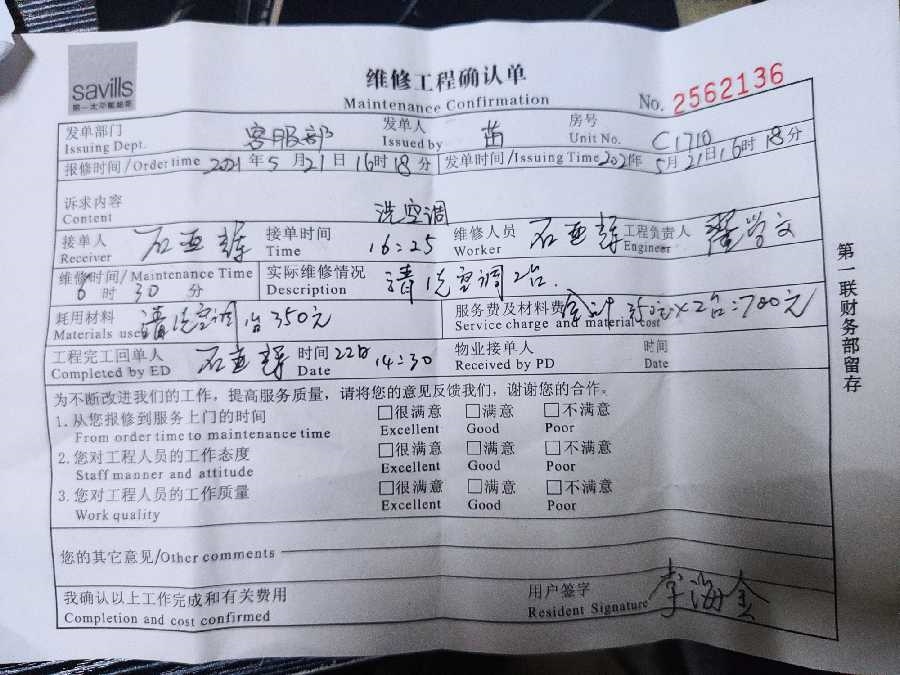 savills
第一太平戴维斯
维修工程确认单
Maintenance Confirmation
No. 2562136
发单部门 客服部 发单人 苗 房号 C1710
Issuing Dept. Issued by Unit No.
报修时间/Order time 2021年5月21日16时18分 发单时间/Issuing Time 2021年5月21日16时18分
诉求内容 洗空调
Content
接单人 石亚辉 接单时间 16:25 维修人员 石亚辉 工程负责人
Receiver Time Worker Engineer
维修时间/Maintenance Time 实际维修情况 清洗空调2台.
时30分 Description
耗用材料 清洗空调1台350元 服务费及材料费 350元×2台=700元
Materials used Service charge and material cost
工程完工回单人 石亚辉 时间 22日 14:30 物业接单人 时间
Completed by ED Date Received by PD Date
为不断改进我们的工作，提高服务质量，请将您的意见反馈我们，谢谢您的合作。
1.从您报修到服务上门的时间 □很满意 □满意 □不满意
From order time to maintenance time Excellent Good Poor
2.您对工程人员的工作态度 □很满意 □满意 □不满意
Staff manner and attitude Excellent Good Poor
3.您对工程人员的工作质量 □很满意 □满意 □不满意
Work quality Excellent Good Poor
您的其它意见/Other comments
我确认以上工作完成和有关费用 用户签字 李海金
Completion and cost confirmed Resident Signature
第一联财务部留存